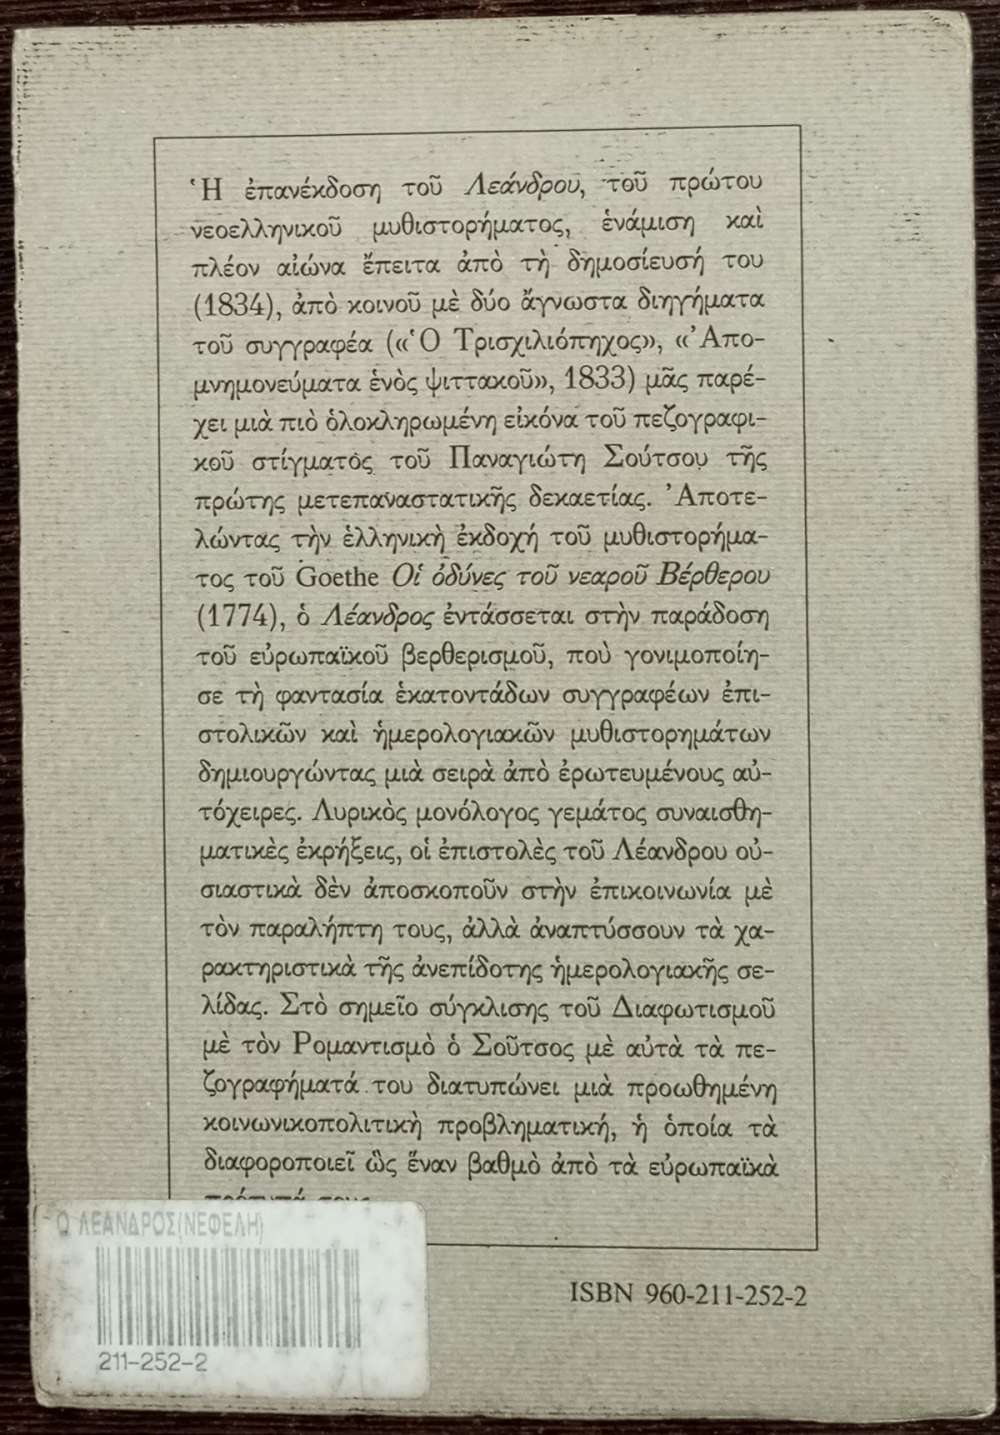 Ἡ ἐπανέκδοση τοῦ Λεάνδρου, τοῦ πρώτου
νεοελληνικοῦ μυθιστορήματος, ἑνάμιση καὶ
πλέον αἰώνα ἔπειτα ἀπὸ τὴ δημοσίευσή του
(1834), ἀπὸ κοινοῦ μὲ δύο ἄγνωστα διηγήματα
τοῦ συγγραφέα («Ὁ Τρισχιλιόπηχος», «Ἀπο-
μνημονεύματα ἑνὸς ψιττακοῦ», 1833) μᾶς παρέ-
χει μιὰ πιὸ ὁλοκληρωμένη εἰκόνα τοῦ πεζογραφι-
κοῦ στίγματος τοῦ Παναγιώτη Σούτσου τῆς
πρώτης μετεπαναστατικῆς δεκαετίας. Ἀποτε-
λώντας τὴν ἑλληνικὴ ἐκδοχή τοῦ μυθιστορήμα-
τος τοῦ Goethe Οἱ ὀδύνες τοῦ νεαροῦ Βέρθερου
(1774), ὁ Λέανδρος ἐντάσσεται στὴν παράδοση
τοῦ εὐρωπαϊκοῦ βερθερισμοῦ, ποὺ γονιμοποίη-
σε τὴ φαντασία ἑκατοντάδων συγγραφέων ἐπι-
στολικῶν καὶ ἡμερολογιακῶν μυθιστορημάτων
δημιουργώντας μιὰ σειρὰ ἀπὸ ἐρωτευμένους αὐ-
τόχειρες. Λυρικὸς μονόλογος γεμάτος συναισθη-
ματικὲς ἐκρήξεις, οἱ ἐπιστολὲς τοῦ Λέανδρου οὐ-
σιαστικὰ δὲν ἀποσκοποῦν στὴν ἐπικοινωνία μὲ
τὸν παραλήπτη τους, ἀλλὰ ἀναπτύσσουν τὰ χα-
ρακτηριστικὰ τῆς ἀνεπίδοτης ἡμερολογιακῆς σε-
λίδας. Στὸ σημεῖο σύγκλισης τοῦ Διαφωτισμοῦ
μὲ τὸν Ρομαντισμὸ ὁ Σοῦτσος μὲ αὐτὰ τὰ πε-
ζογραφήματά του διατυπώνει μιὰ προωθημένη
κοινωνικοπολιτικὴ προβληματική, ἡ ὁποία τὰ
διαφοροποιεῖ ὣς ἕναν βαθμὸ ἀπὸ τὰ εὐρωπαϊκὰ
Ο ΛΕΑΝΔΡΟΣ(ΝΕΦΕΛΗ)
211-252-2
ISBN 960-211-252-2